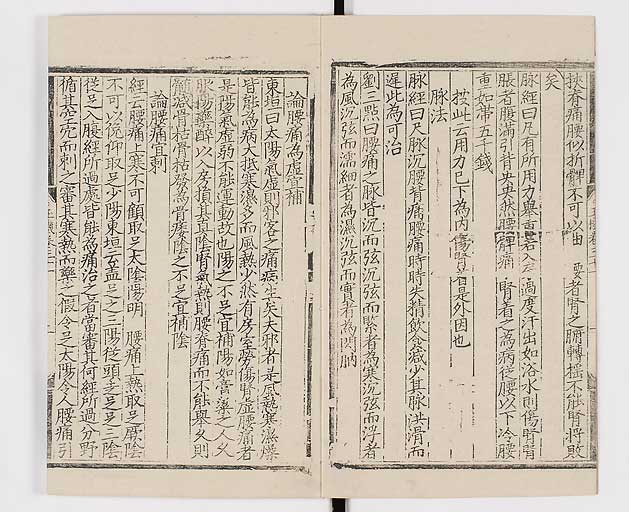 挾脊痛腰似折髀不可以曲　腰者腎之府轉搖不能腎將敗
矣
脉經曰凡有所用力舉重若入房過度汗出如浴水則傷腎腎
脹者腹滿引背央央然腰髀痛　腎著之為病從腰以下冷腰
重如帶五千錢
按此云用力已下為内傷腎着是外因也
脉法
脉經曰尺脉沉腰背痛腰痛時時失精飲食減少其脉沉滑而
遲此為可治
劉三點曰腰痛之脉皆沉而弦沉弦而緊者為寒沉弦而浮者
為風沉弦而濡細者為濕沉弦而實者為閃肭
論腰痛為虛宜補
東垣曰太陽氣虛則邪客之痛病生矣夫邪者是風熱寒濕燥
皆能為病大抵寒濕多而風熱少然有房室勞傷腎虛腰痛者
是陽氣虛弱不能運動故也陽之不足宜補陽如膏粱之人久
服湯藥醉以入房損其真陰腎氣熱則腰脊痛而不能舉久則
髓減骨枯骨枯發為骨痿陰之不足宜補陰
論腰痛宜刺
經云腰痛上寒不可顧取足太陰陽明　腰痛上熱取足厥陰
不可以俛仰取足少陽東垣云蓋足之三陽從頭走足足三陰
從足入腹經所過處皆能為痛治之者當審其何經所過分野
循其空穴而刺之審其寒熱而藥之假令足太陽令人腰痛引